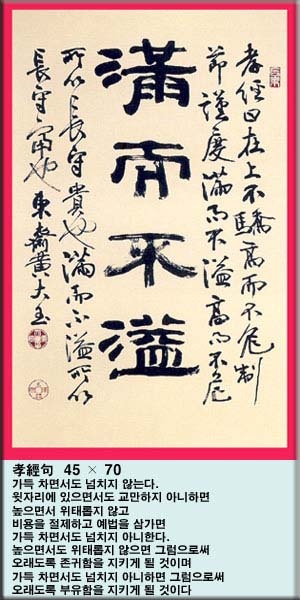 孝經曰在上不驕高而不危制
節謹度滿而不溢高而不危
滿而不溢
所以長守貴也滿而不溢所以
長守富也 東齋黃大玉
孝經句 45 × 70
가득 차면서도 넘치지 않는다.
윗자리에 있으면서도 교만하지 아니하면
높으면서 위태롭지 않고
비용을 절제하고 예법을 삼가면
가득 차면서도 넘치지 아니한다.
높으면서도 위태롭지 않으면 그럼으로써
오래도록 존귀함을 지키게 될 것이며
가득 차면서도 넘치지 아니하면 그럼으로써
오래도록 부유함을 지키게 될 것이다